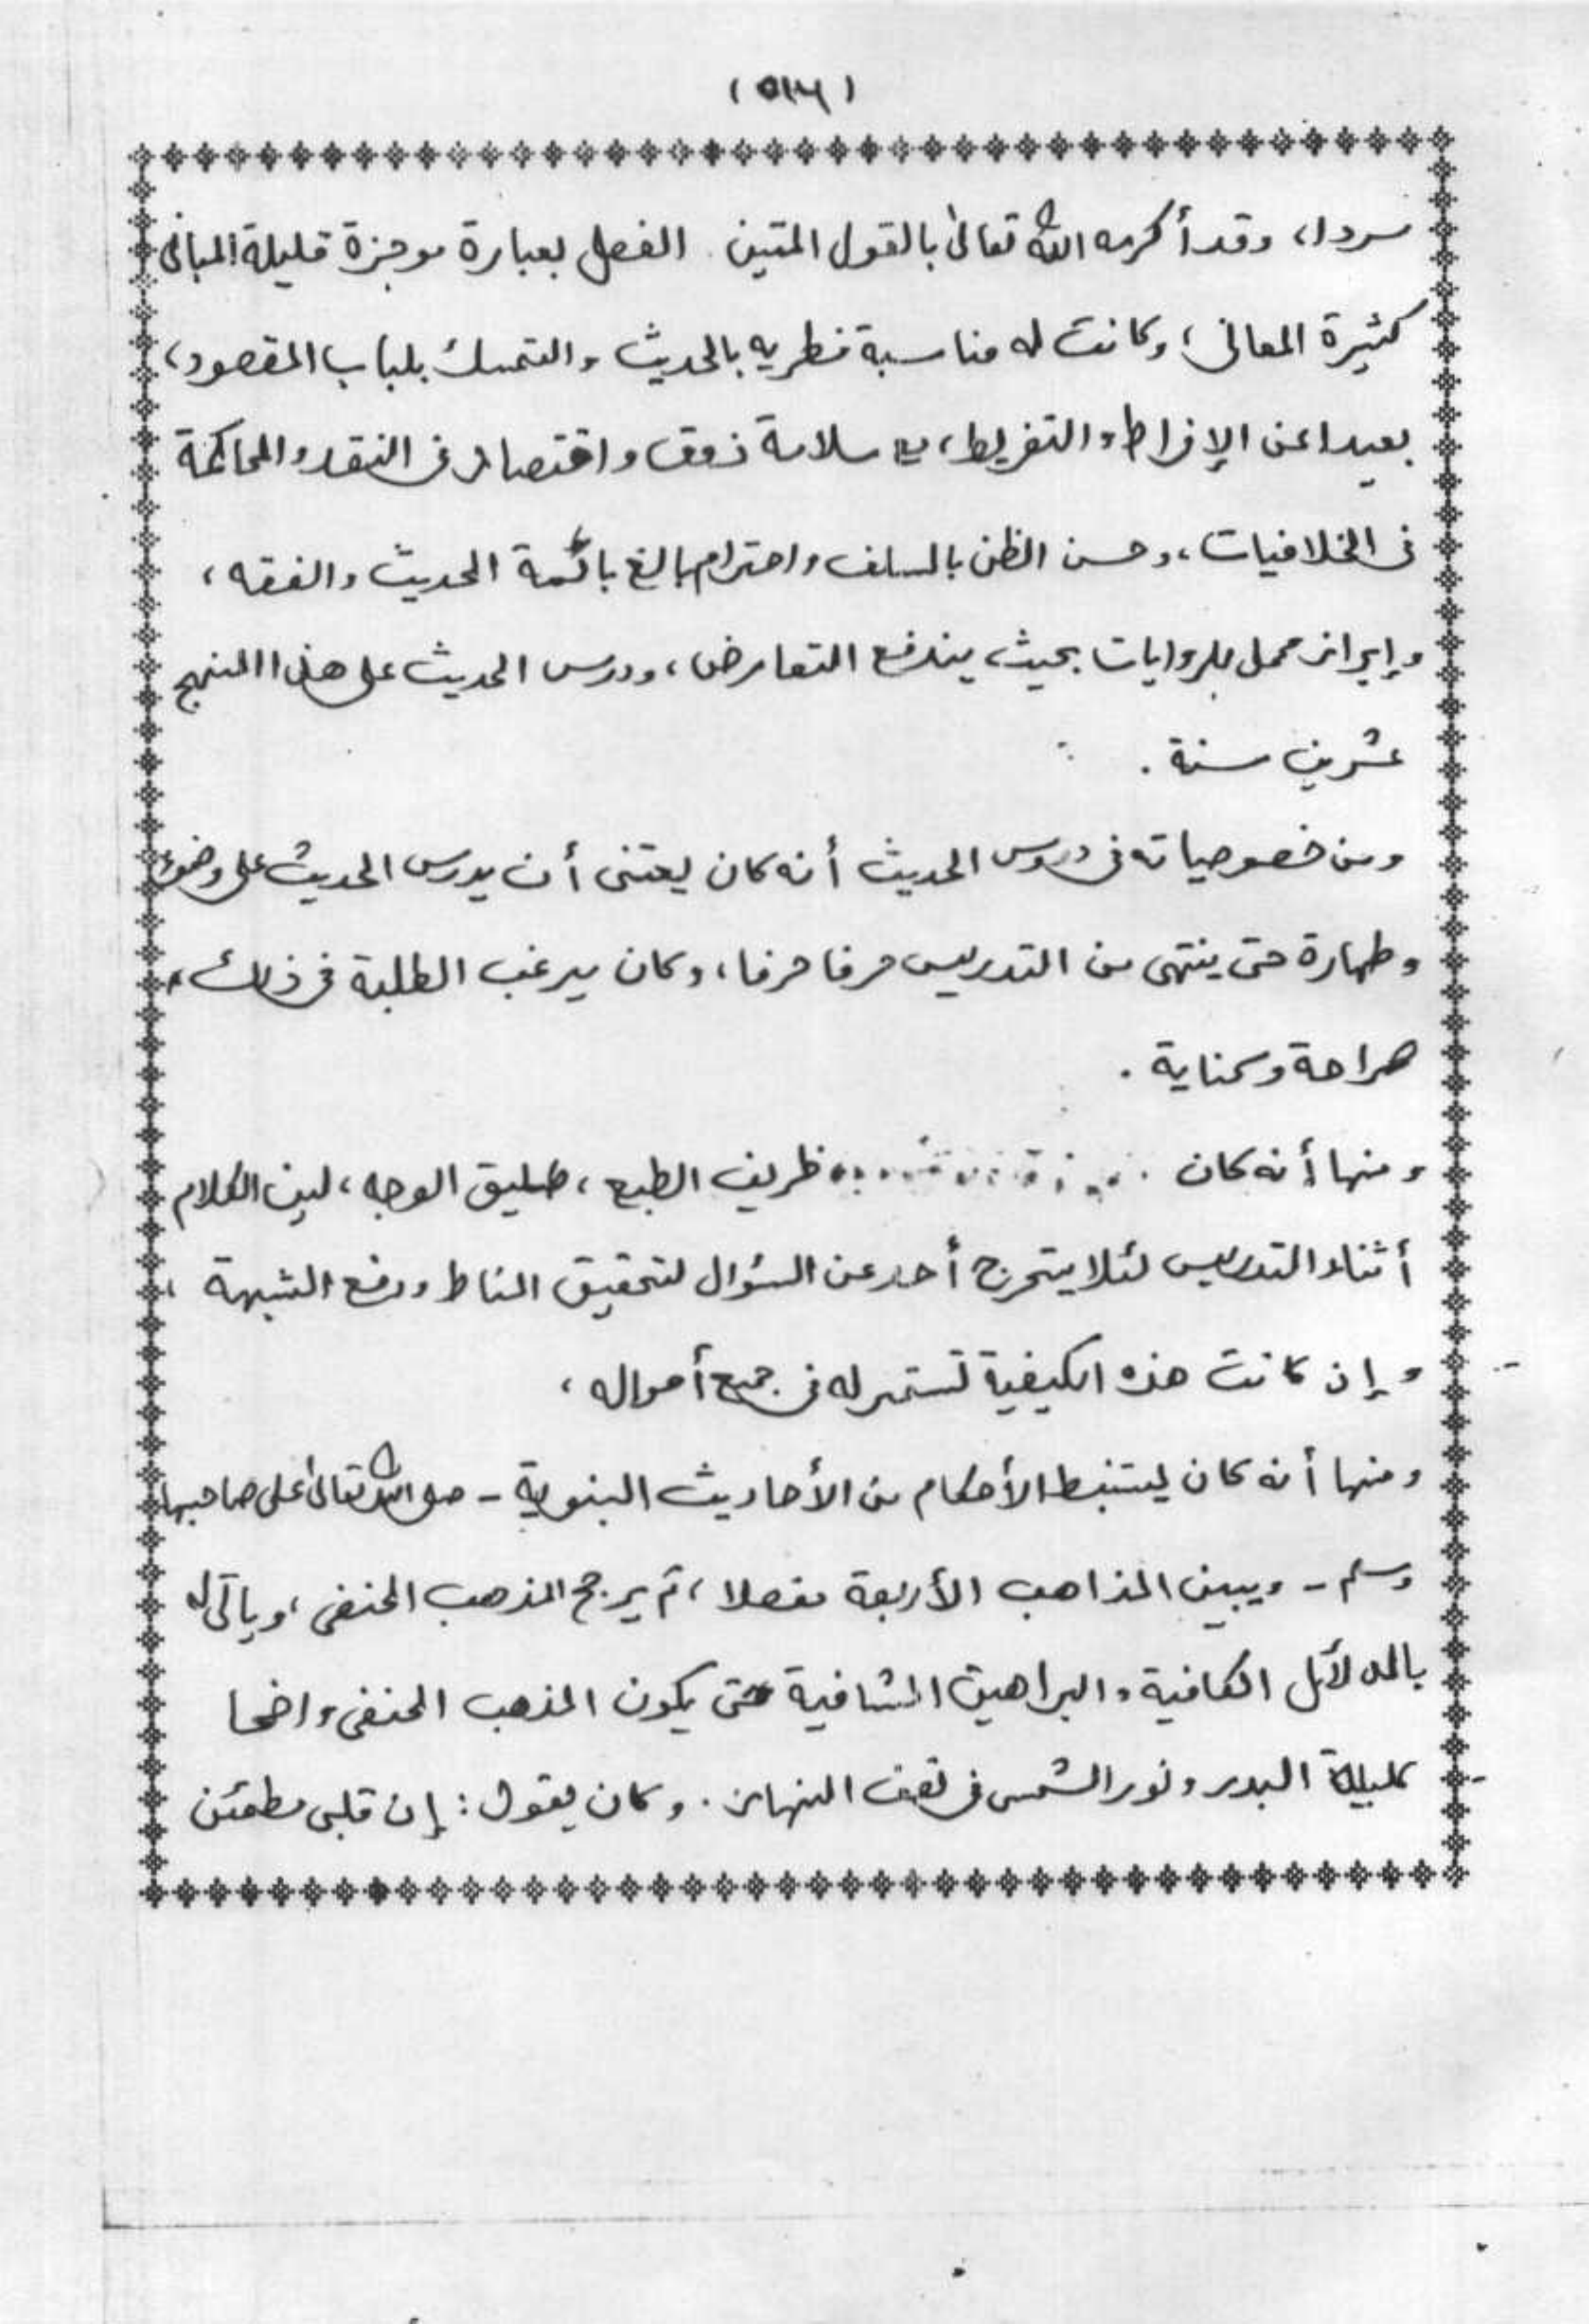 سردا، وقد أكرمه الله تعالى بالقول المتين الفصل بعبارة موجزة قليلة المبانى
كثيرة المعانى، وكانت له مناسبة فطريه بالحديث والتمسك بلباب المقصود،
بعيدا عن الإفراط والتفريط، مع سلامة ذوق واقتصاد فى النقد والمحاكمة
فى الخلافيات، وحسن الظن بالسلف واحترام بالغ بائمة الحديث والفقه،
وإيراد محمل للروايات بحيث يندفع التعارض، ودرس الحديث على هذا المنهج
عشرين سنة .
ومن خصوصياته فى دروس الحديث أنه كان يعتنى أن يدرس الحديث على وضوء
وطهارة حتى ينتهى من التدريس حرفا حرفا، وكان يرغب الطلبة فى ذلك،
صراحة وكناية .
ومنها أنه كان ظريف الطبع، طليق الوجه، لين الكلام
أثناء التدريس لئلا يتحرج أحد عن السؤال لتحقيق المناط ورفع الشبهة،
وإن كانت هذه الكيفية تستمر له فى جميع أحواله،
ومنها أنه كان يستنبط الأحكام من الأحاديث النبوية - صلى الله تعالى على صاحبها
وسلم - ويبين المذاهب الأربعة مفصلا، ثم يرجح المذهب الحنفى، ويأتى له
بالدلائل الكافية والبراهين الشافية حتى يكون المذهب الحنفى واضحا
كليلة البدر ونور الشمس فى نصف النهار. وكان يقول: إن قلبى مطمئن